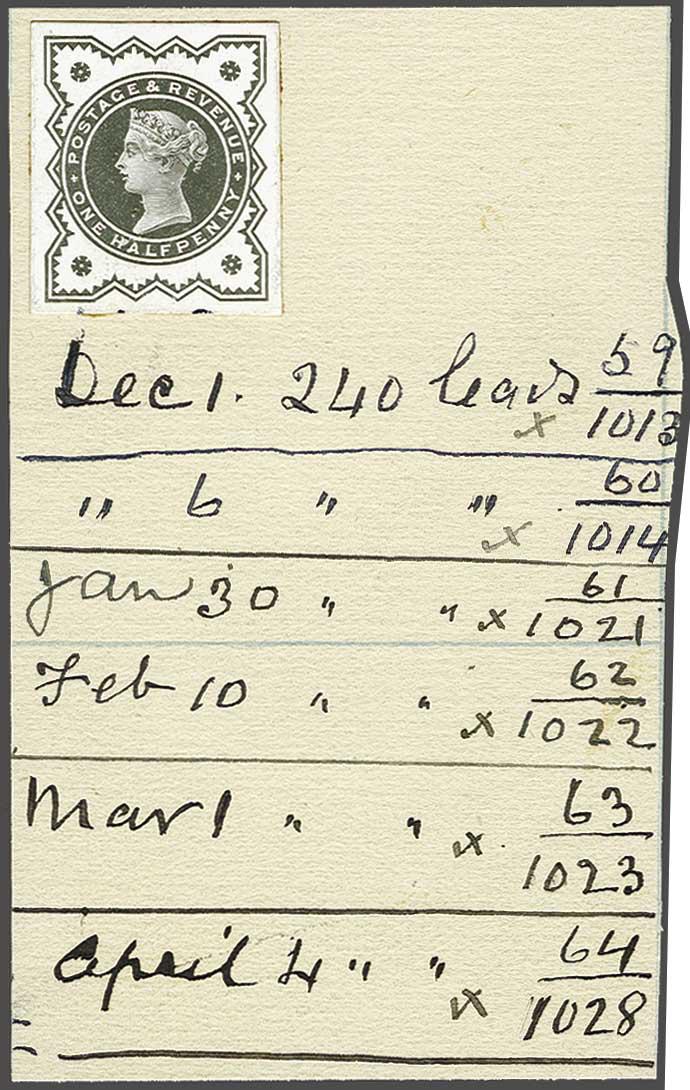 POSTAGE & REVENUE
ONE HALFPENNY
Dec 1. 240 leads x 59/1013
" 6 " " x 60/1014
Jan 30 " " x 61/1021
Feb 10 " " x 62/1022
Mar 1 " " x 63/1023
April 4 " " x 64/1028